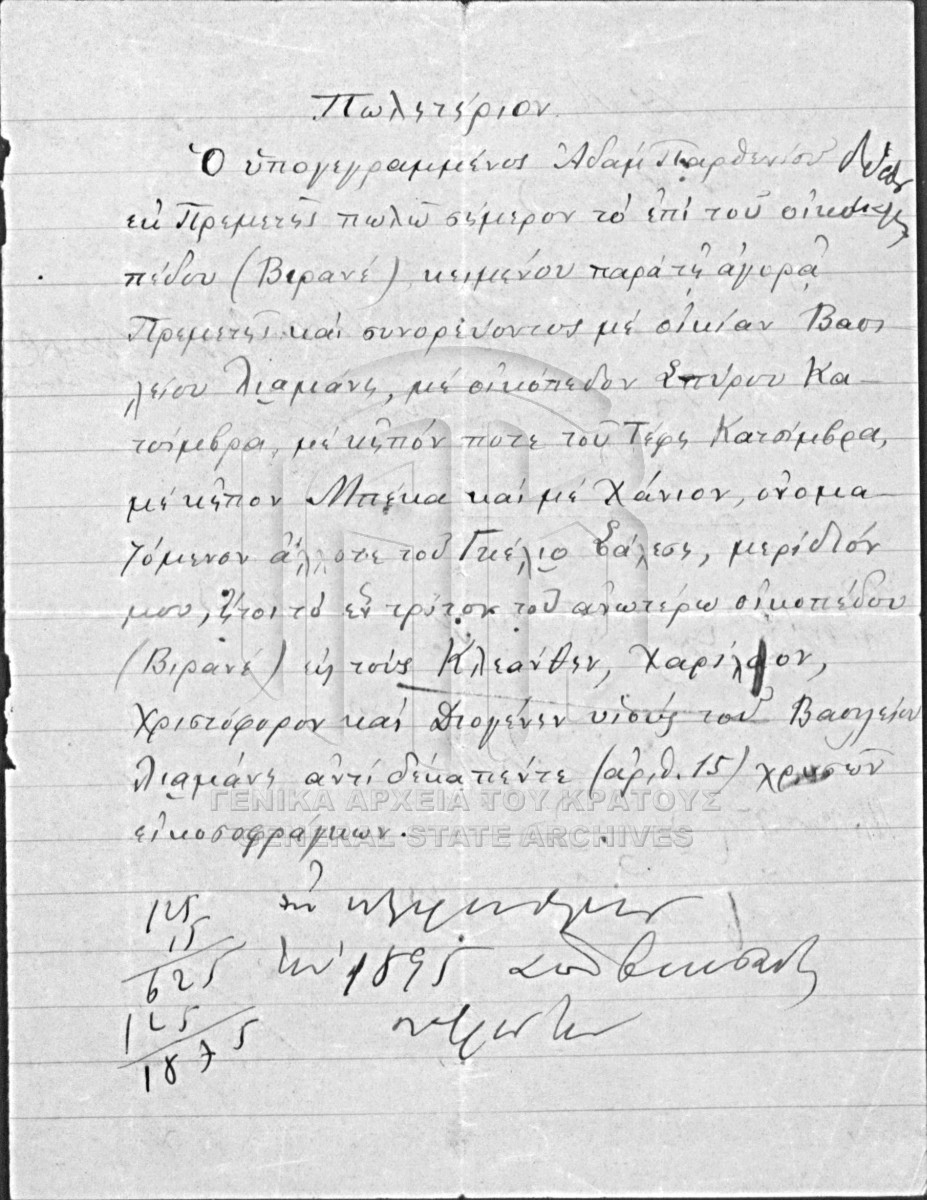 Πωλετέριον
Ὁ ὑπογεγραμμένος Ἀδάμ Παρθενίου
ἐκ Πρεμετῆς πωλῶ σήμερον τό ἐπί τοῦ οἰκο
πέδου (Βιρανέ) κειμένου παρά τῇ ἀγορᾷ
Πρεμετῆς καί συνορεύοντος μέ οἰκίαν Βασι
λείου Λιαμάνη, μέ οἰκόπεδον Σπύρου Κα-
τσίμβρα, μέ κῆπόν ποτε τοῦ Τέφη Κατσίμβρα,
μέ κῆπον Μπέκα καί μέ Χάνιον, ὀνομα-
ζόμενον ἄλλοτε τοῦ Γκέλιο Σάλεση, μερίδιόν
μου, ἤτοι τό ἕν τρίτον τοῦ ἀνωτέρω οἰκοπέδου
(Βιρανέ) εἰς τούς Κλεάνθην, Χαρίλαον,
Χριστόφορον καί Διογένην υἱούς τοῦ Βασιλείου
Λιαμάνη ἀντί δεκαπέντε (ἀριθ. 15) χρυσῶν
εἰκοσοφράγκων.
125
15
625 1895
125
1875
ΓΕΝΙΚΑ ΑΡΧΕΙΑ ΤΟΥ ΚΡΑΤΟΥΣ
GENERAL STATE ARCHIVES